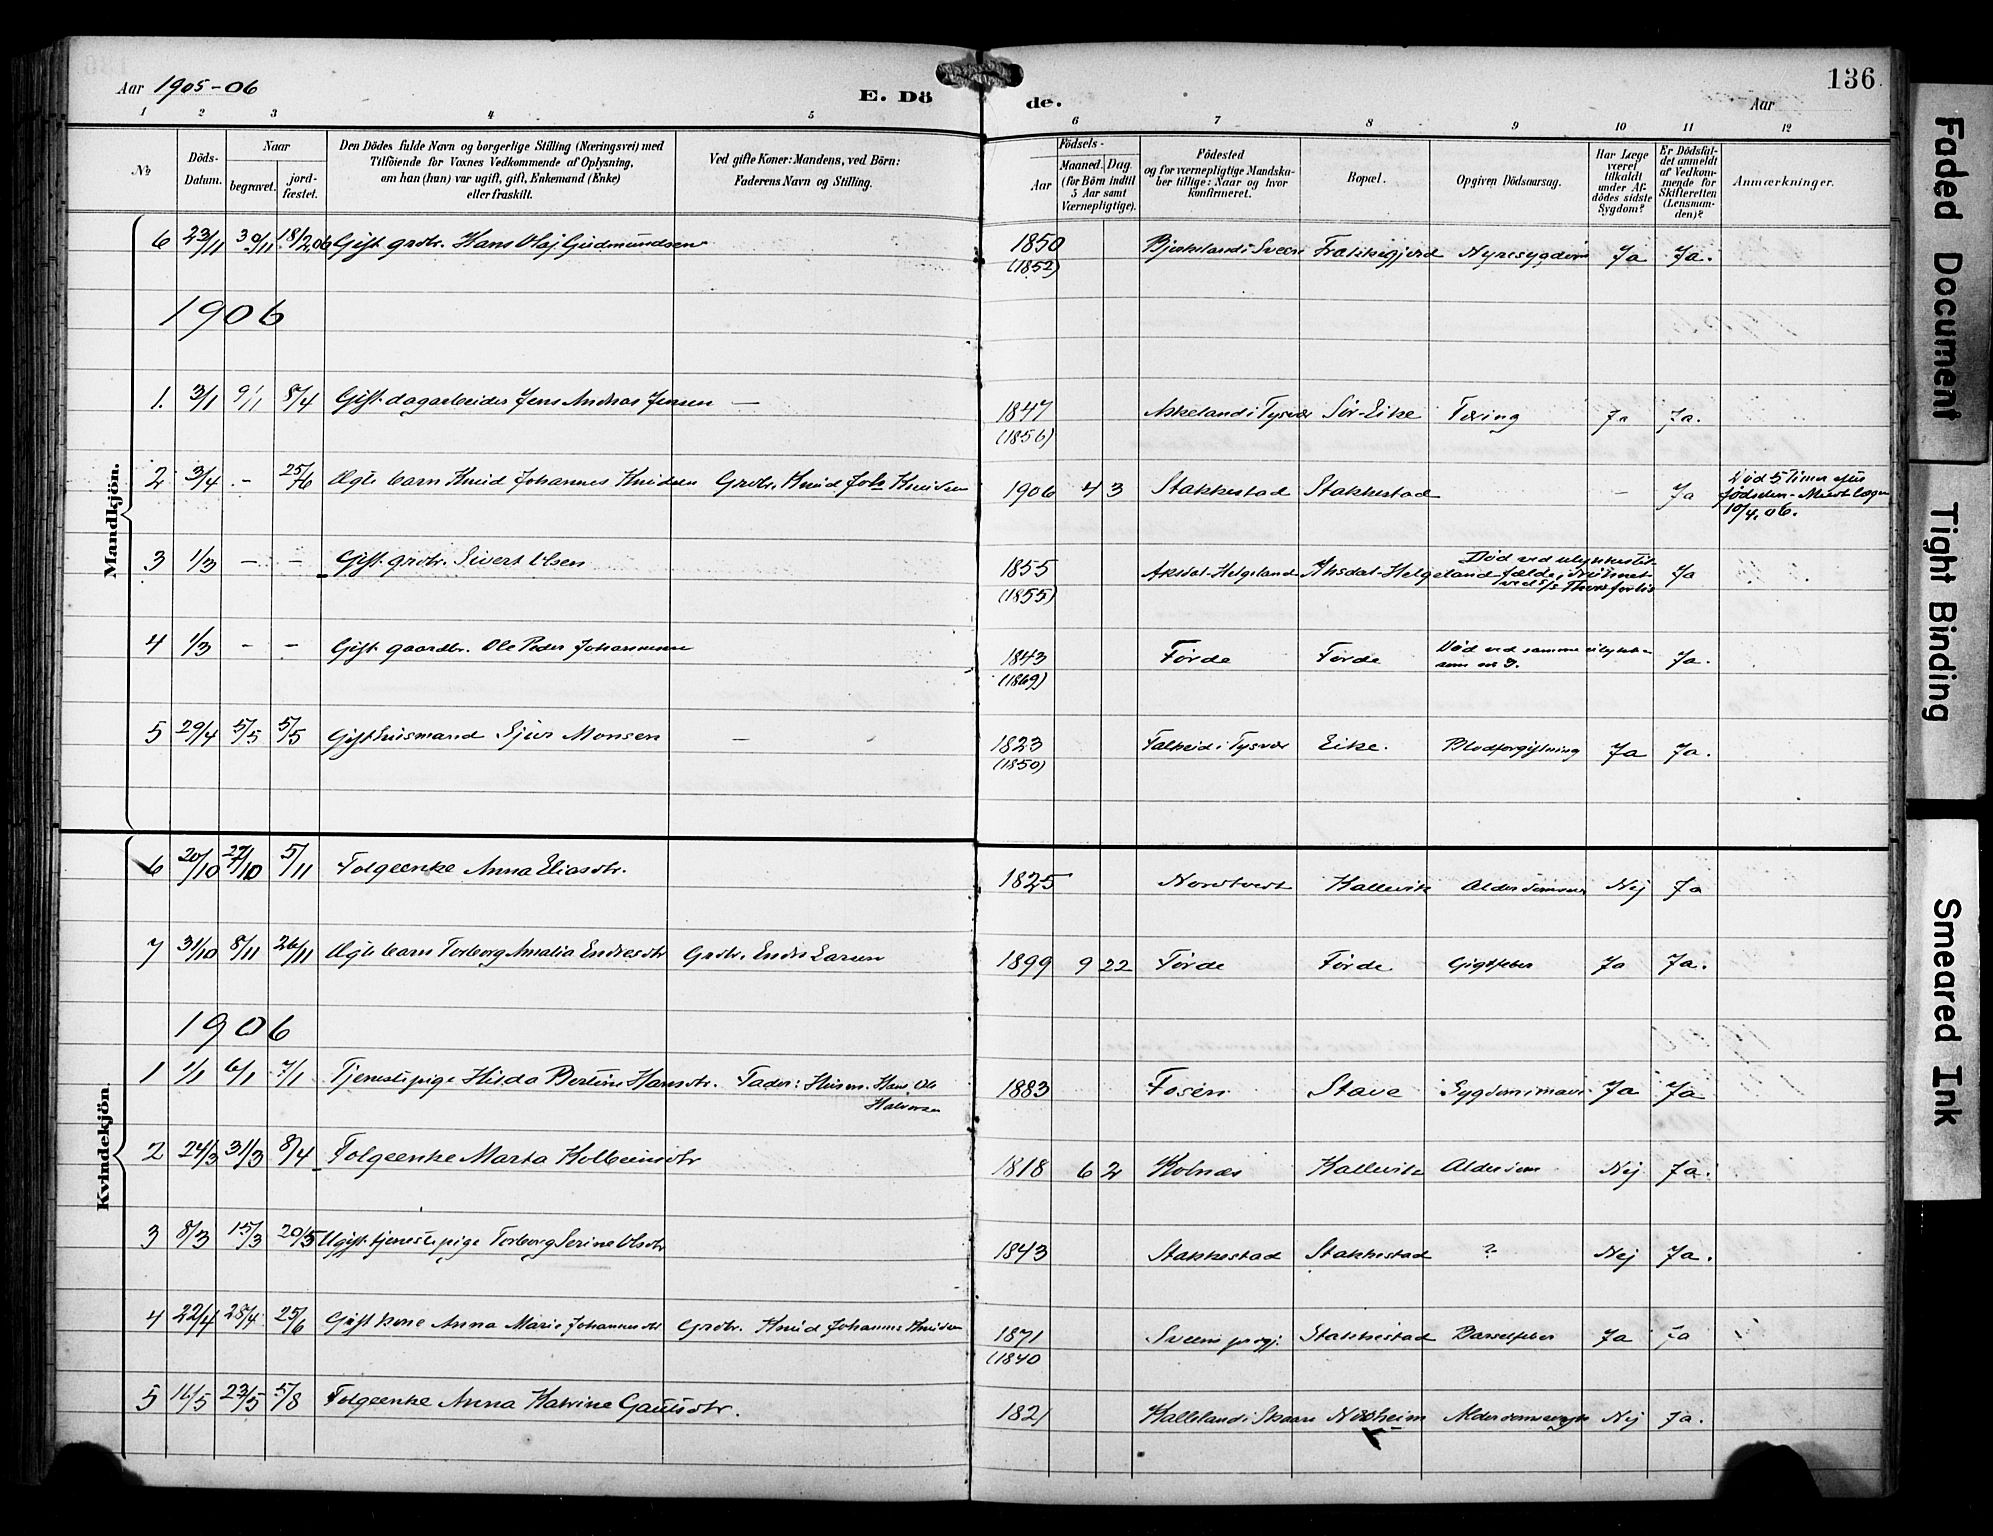 Aar 1905-06
E. Dö
de.
136
Aar
1 2 3 4 5 6 7 8 9 10 11 12
No
Döds-Datum.
Naar
begravet.
jord-fæstet.
Den Dödes fulde Navn og borgerlige Stilling (Næringsvei) med
Tilföiende for Voxnes Vedkommende af Oplysning,
om han (hun) var ugift, gift, Enkemand (Enke)
eller fraskilt.
Ved gifte Koner: Mandens, ved Börn:
Faderens Navn og Stilling.
Födsels-
Aar
Maaned. Dag.
(for Börn indtil
5 Aar samt
Værnepligtige).
Födested
og for værnepligtige Mandska-
ber tillige: Naar og hvor
konfirmeret.
Bopæl.
Opgiven Dödsaarsag.
Har Læge
været
tilkaldt
under Af-
dödes sidste
Sygdom?
Er Dödsfal-
det anmeldt
af Vedkom-
mende for
Skifteretten
(Lensman-
den)?
Anmærkninger.
Mandkjön.
6 23/11 30/11 18/2 06 Gift grdbr. Hans Olaj Gudmundsen 1850 Bjerkeland i Sveen Frakkagjerd Nyresygdom Ja Ja.
(1852)
1906
1. 3/1 9/1 8/4 Gift dagarbeider Jens Andreas Jensen — 1847 Askeland i Tysvær Sör-Eike Tæring Ja Ja.
(1856)
2 3/4 - 25/6 Ægte barn Knud Johannes Knudsen Grdbr. Knud Joh. Knudsen 1906 4 3 Stakkestad Stakkestad - Ja Död 5 Timer efter
födselen
10/4. 06.
3 1/3 - - Gift grdbr. Sivert Olsen 1855 Aksdal-Helgeland Aksdal-Helgeland Död ved ulykkestil-
fælde, Ja
(1855)
4 1/3 - - Gift gaardbr. Ole Peder Johannessen 1843 Förde Förde Död ved samme
som no 3. Ja.
(1869)
5 29/4 5/5 5/5 Gift husmand Sjur Monsen — 1823 Falkeid i Tysvær Eike. Blodforgiftning Ja Ja.
(1850)
Kvindekjön.
6 20/10 27/10 5/11 Folgeenke Anna Eliasdtr. 1825 Nordtvedt Kallevik Nej Ja
7 31/10 8/11 26/11 Ægte barn Torborg Amalia Endresdtr Grdbr. Endre Larsen 1899 9 22 Förde Förde Gigtfeber Ja Ja.
1906
1 1/1 6/1 7/1 Tjenestepige Hilda Bertine Hansdtr. Fader: Husm. Hans Ole
Halvorsen 1883 Fosen Stave Sygdom i mave Ja Ja
2 24/3 31/3 8/4 Folgeenke Marta Kolbeinsdtr 1818 6 2 Kolnæs Kallevik Alderdom Nej Ja.
3 8/3 15/3 20/5 Ugift tjenestepige Torborg Serine Olsdtr 1843 Stakkestad Stakkestad ? Nej Ja.
4 22/4 28/4 25/6 Gift kone Anna Marie Johannesdtr Grdbr. Knud Johannes Knudsen 1871 Sveens prgj. Stakkestad Barselfeber Ja Ja
(1840
5 16/5 23/5 5/8 Folgeenke Anna Katrine Gautsdtr. 1821 Kalleland i Skaare Norheim Nej Ja.
Faded Document
Tight Binding
Smeared Ink